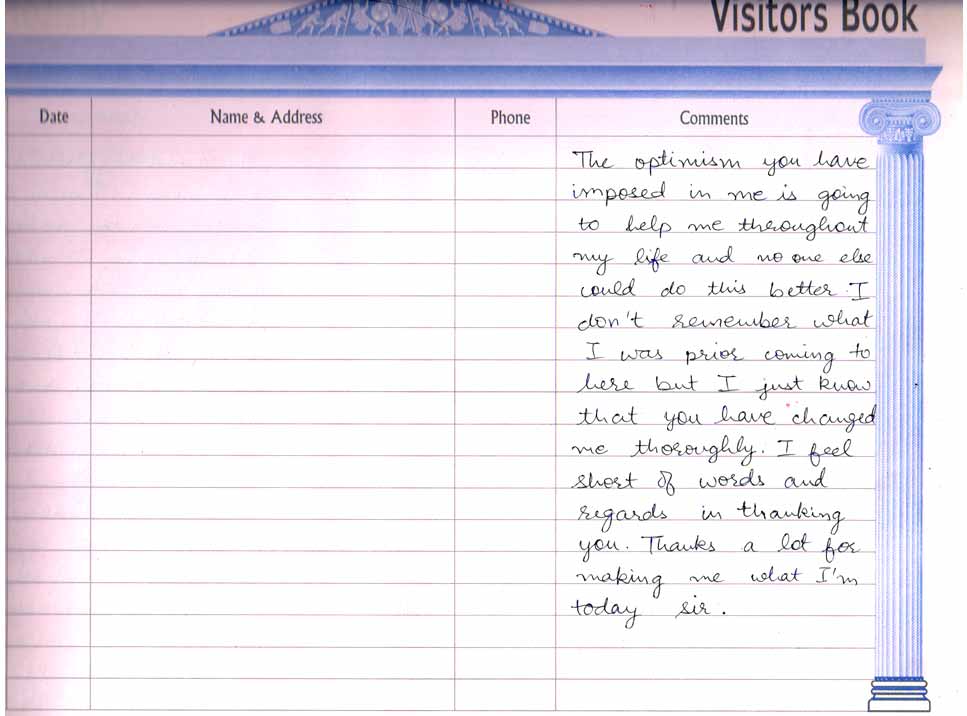 Visitors Book
Date Name & Address Phone Comments
The optimism you have
imposed in me is going
to help me throughout
my life and no one else
could do this better. I
don't remember what
I was prior coming to
here but I just know
that you have changed
me thoroughly. I feel
short of words and
regards in thanking
you. Thanks a lot for
making me what I'm
today sir.